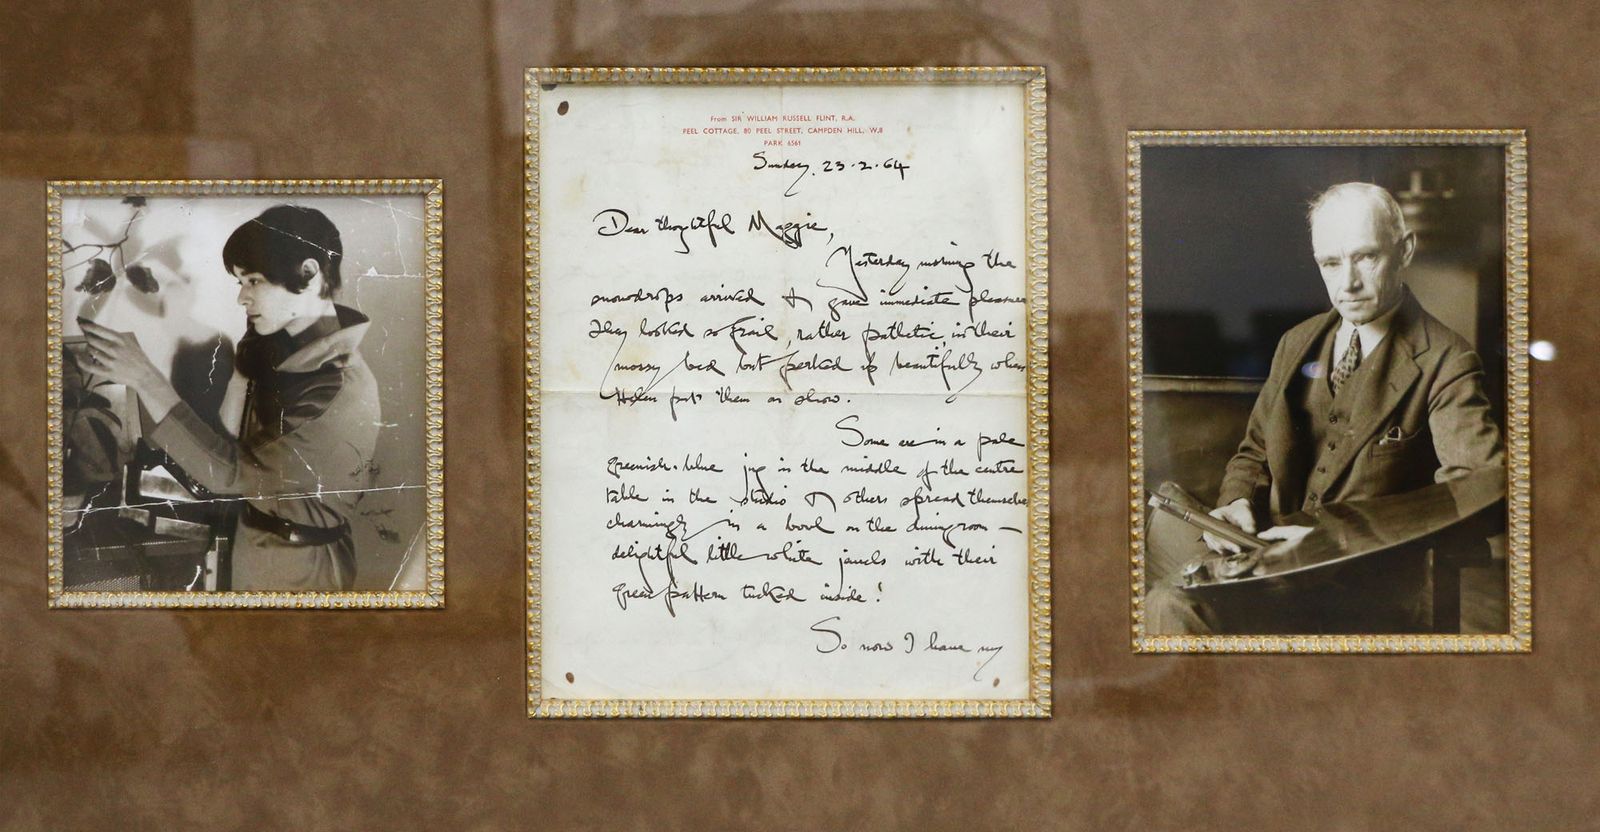 From SIR WILLIAM RUSSELL FLINT, R.A.
PEEL COTTAGE, 80 PEEL STREET, CAMPDEN HILL, W.8
PARK 6561
Sunday, 23-2-64
Dear thoughtful Maggie,
Yesterday morning the
snowdrops arrived & gave immediate pleasure
They looked so frail, rather pathetic, in their
mossy bed but perked up beautifully when
Helen put them on show.
Some are in a pale
greenish-blue jug in the middle of the centre
table in the studio & others spread themselves
charmingly in a bowl on the diningroom —
delightful little white jewels with their
green pattern tucked inside!
So now I have my